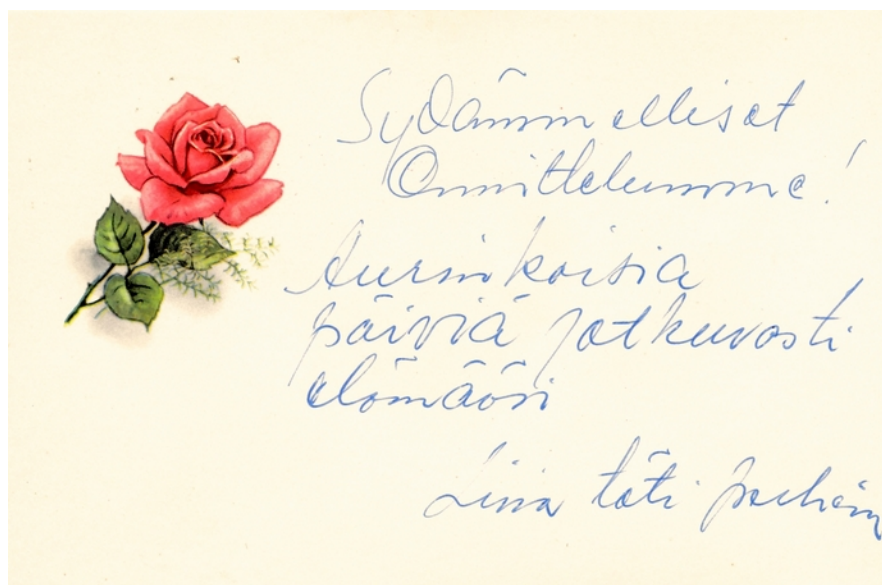 Sydämmelliset
Onnittelumme!
Aurinkoisia
päiviä jatkuvasti
elämääsi
täti